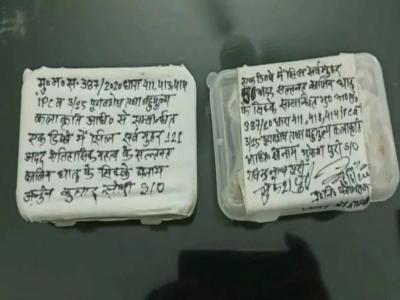 मु0अ0स0 387/2020 धारा 411,413,414
IPC व 3/25 पुरावशेष तथा बहुमूल्य
कलाकृति आदि से सम्बन्धित
एक डिब्बे में सील सर्व मुहर 121
अदद ऐतिहासिक महत्व के सल्तनत
कालिन धातु के सिक्के बनाम
कुमार S/O
एक डिब्बे में सील सर्व मुहर
50 अदद सल्तनत कालिन धातु
के सिक्के सम्बन्धित मु0अ0स0
387/20 धारा 411,413,414 IPC व
3/25 पुरावशेष तथा बहुमूल्य कलाकृति
बनाम मुकेश पुरी S/O